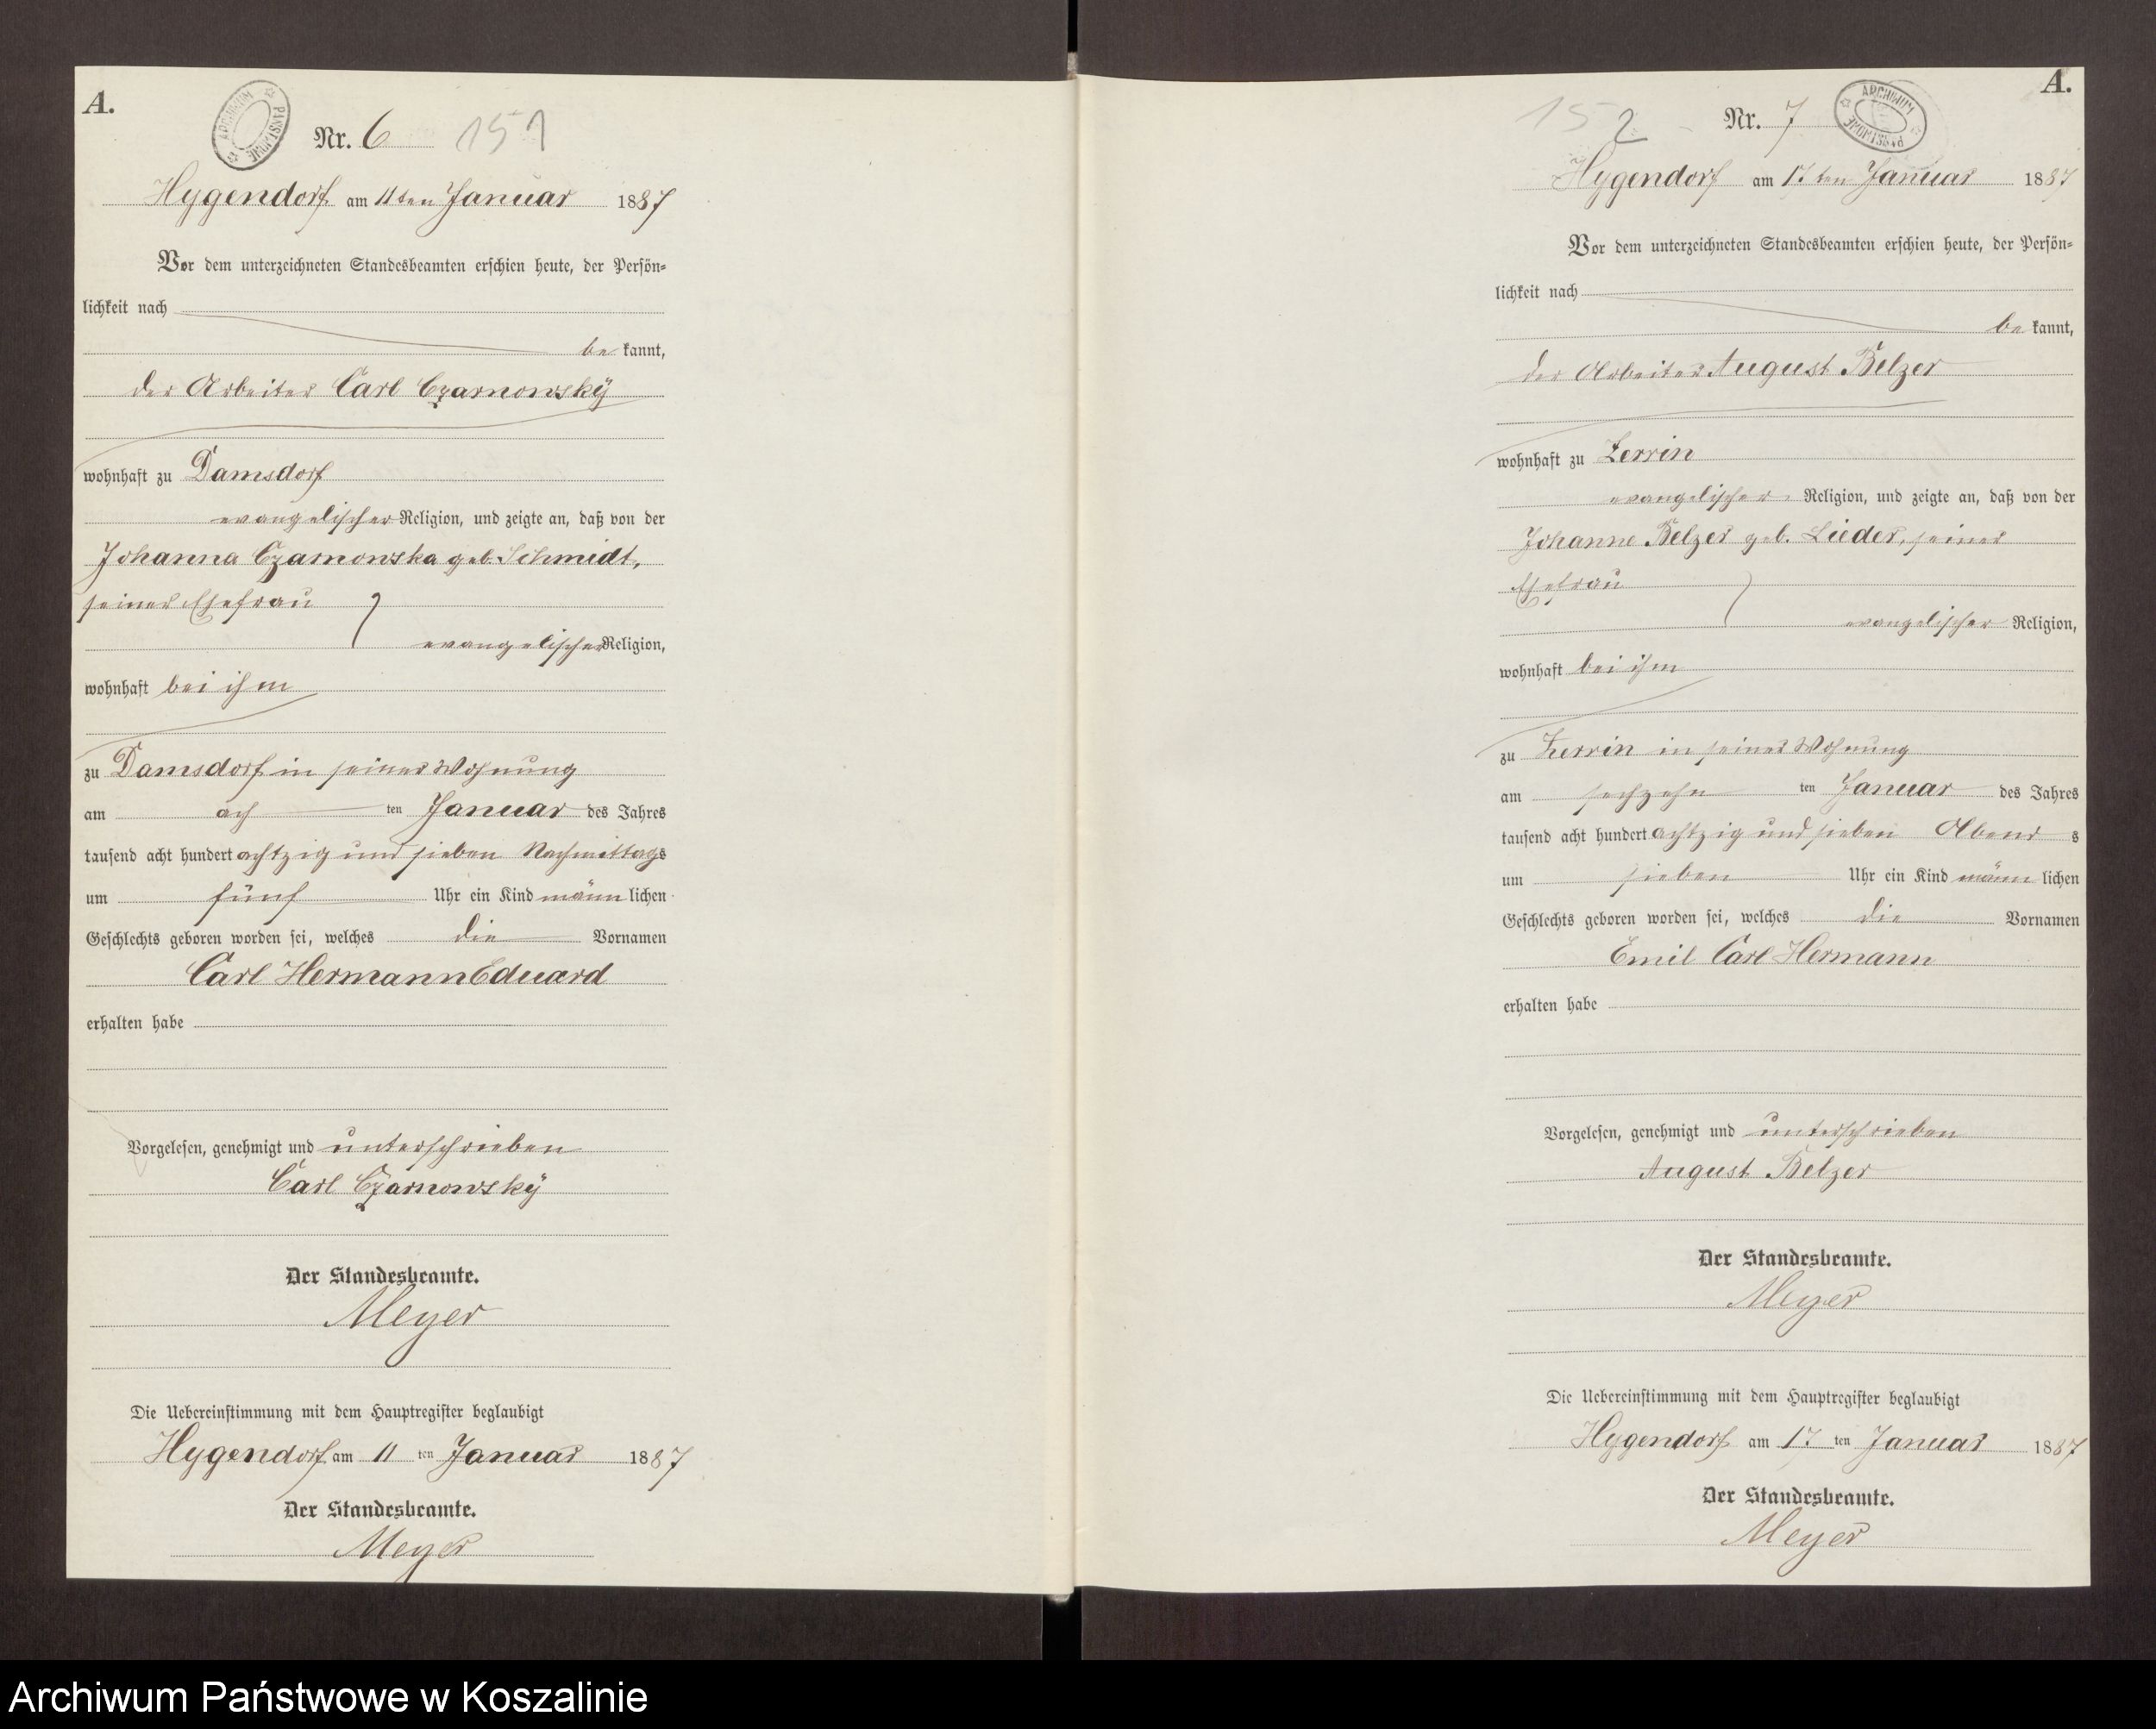 A.
ARCHIWUM PAŃSTWOWE
Nr. 6 151
Hygendorf am 11ten Januar 1887
Vor dem unterzeichneten Standesbeamten erschien heute, der Persön-
lichkeit nach
be kannt,
der Arbeiter Carl Czarnowský
wohnhaft zu Damsdorf
evangelischer Religion, und zeigte an, daß von der
Johanna Czarnowska geb. Schmidt,
seiner Ehefrau
evangelischer Religion,
wohnhaft bei ihm
zu Damsdorf in seiner Wohnung
am ach ten Januar des Jahres
tausend acht hundert achtzig und sieben Nachmittags
um fünf Uhr ein Kind männ lichen
Geschlechts geboren worden sei, welches die Vornamen
Carl Hermann Eduard
erhalten habe
Vorgelesen, genehmigt und unterschrieben
Carl Czarnowský
Der Standesbeamte.
Meyer
Die Uebereinstimmung mit dem Hauptregister beglaubigt
Hygendorf am 11 ten Januar 1887
Der Standesbeamte.
Meyer
A.
152 Nr. 7
ARCHIWUM PAŃSTWOWE
Hygendorf am 17ten Januar 1887
Vor dem unterzeichneten Standesbeamten erschien heute, der Persön-
lichkeit nach
be kannt,
der Arbeiter August Belzer
wohnhaft zu Zerrin
evangelischer Religion, und zeigte an, daß von der
Johanne Belzer geb. Lieder, seiner
Ehefrau
evangelischer Religion,
wohnhaft bei ihm
zu Zerrin in seiner Wohnung
am sechzehn ten Januar des Jahres
tausend acht hundert achtzig und sieben Abend s
um sieben Uhr ein Kind männ lichen
Geschlechts geboren worden sei, welches die Vornamen
Emil Carl Hermann
erhalten habe
Vorgelesen, genehmigt und unterschrieben
August Belzer
Der Standesbeamte.
Meyer
Die Uebereinstimmung mit dem Hauptregister beglaubigt
Hygendorf am 17 ten Januar 1887
Der Standesbeamte.
Meyer
Archiwum Państwowe w Koszalinie